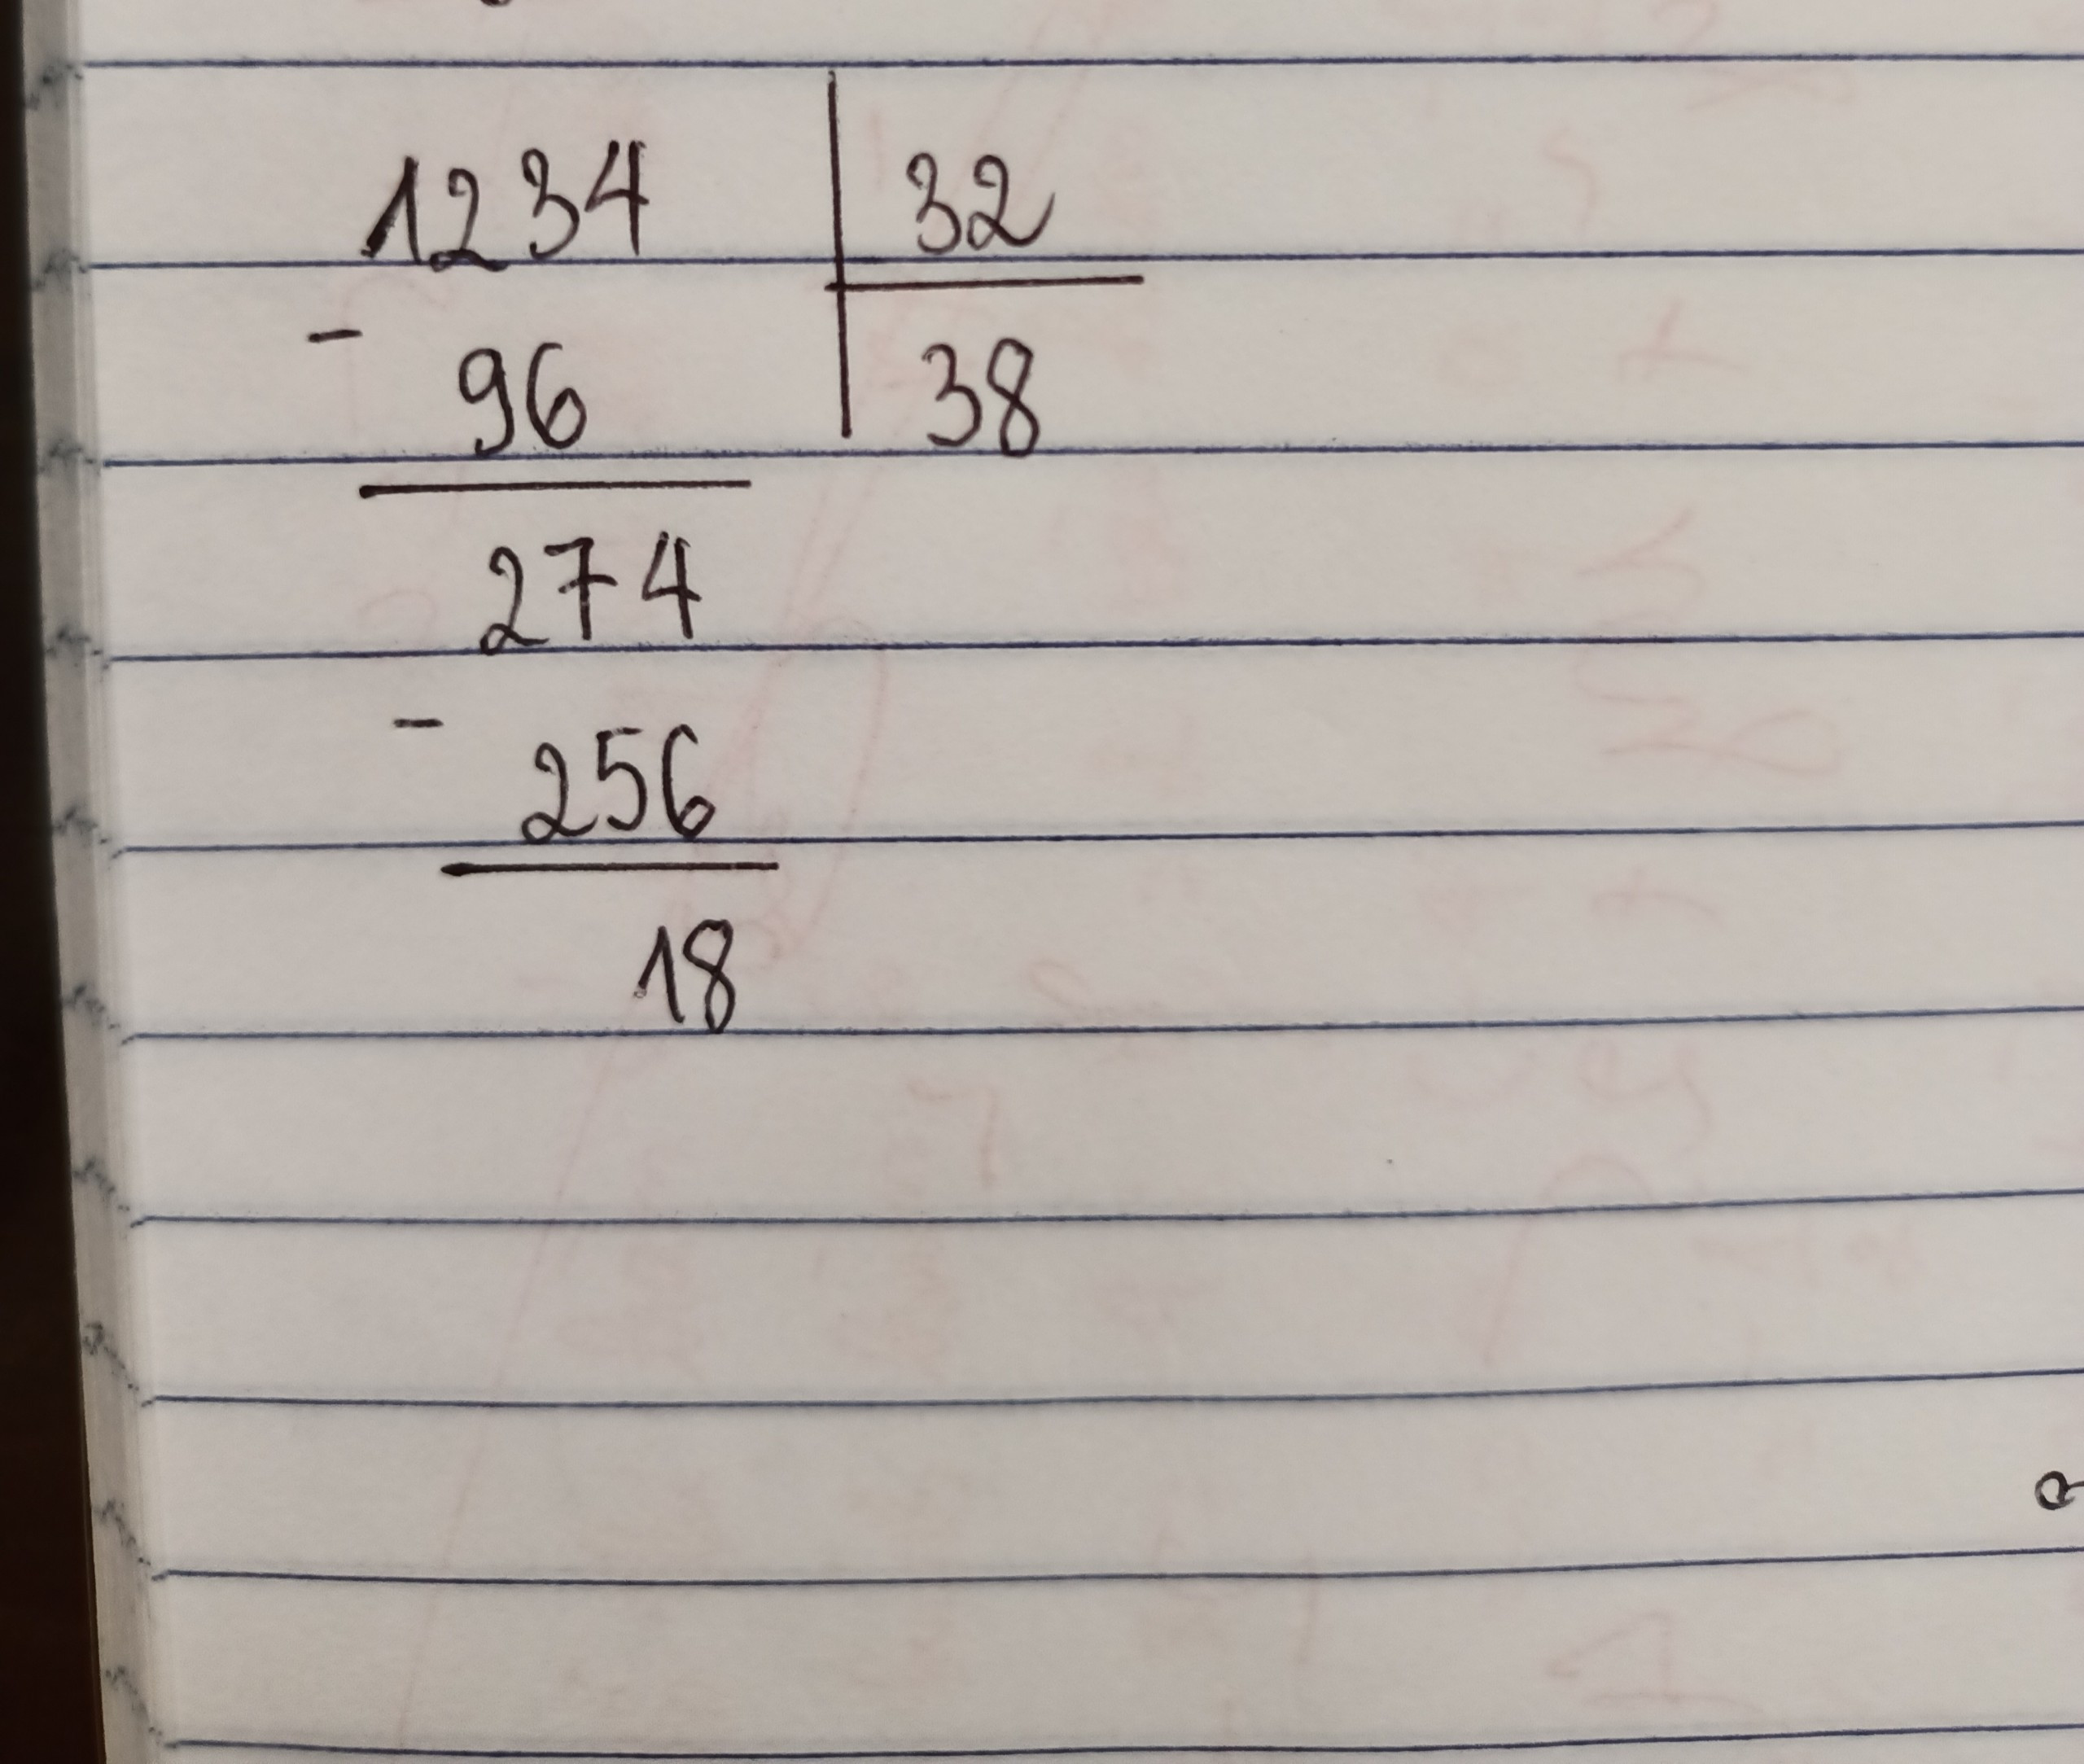 1234 | 32
- 96 | 38
274
- 256
18